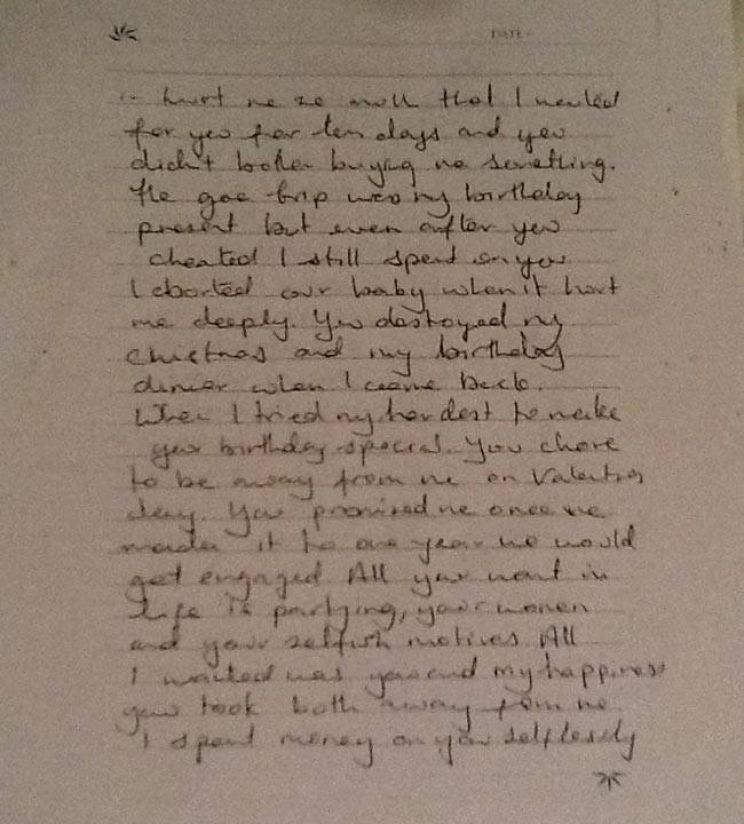 DATE
hurt me so much that I waited
for you for ten days and you
didn't bother buying me something.
The goa trip was my birthday
present but even after you
cheated I still spent on you
I aborted our baby when it hurt
me deeply. You destroyed my
Chistmas and my birthday
dinner when I came back.
When I tried my hardest to make
your birthday special. You chose
to be away from me on Valentines
day. You promised me once we
made it to one year we would
get engaged All you want in
life is partying, your women
and your selfish motives All
I wanted was you and my happiness
you took both away from me
I spent money on you selflessly